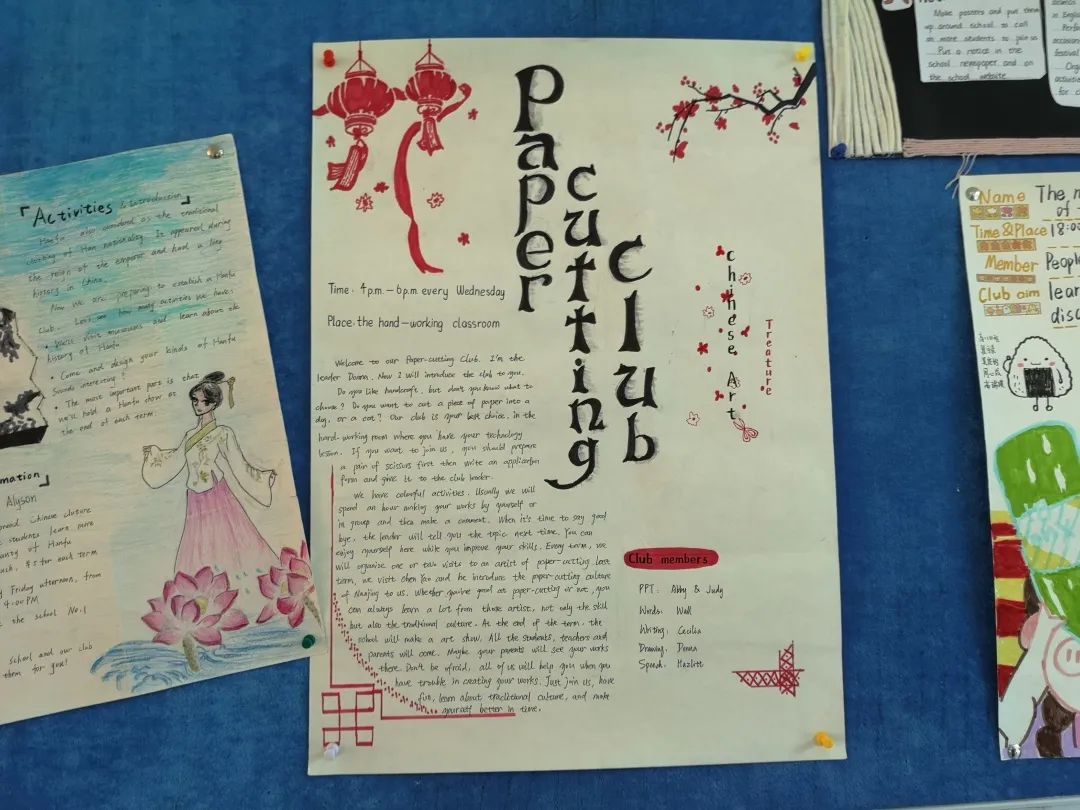 「Activities & Introduction」
Hanfu also considered as the traditional
clothing of Han nationality. It appeared during
the reign of the emperor and had a long
history in China.
Now we are preparing to establish a Hanfu
club. Let's see how many activities we have:
• We'll visit museums and learn about the
history of Hanfu
• Come and design your kinds of Hanfu
Sounds interesting!
• The most important part is that
we'll hold a Hanfu show at
the end of each term.
mation」
Alyson
Chinese
students learn more
of Hanfu
for each term
Friday afternoon, from
4:00 PM
the school No.1
school and our club
them for you!
Paper
cutting
Club
Chinese Art
Treature
Time: 4p.m.—6p.m. every Wednesday
Place: the hand—working classroom
Welcome to our Paper-cutting Club. I'm the
leader Donna. Now I will introduce the club to you.
Do you like handcraft, but don't you know what to
choose? Do you want to cut a piece of paper into a
dog, or a cat? Our club is your best choice. in the
hard-working room where you have your technology
lesson. If you want to join us, you should prepare
a pair of scissors first then write an application
form and give it to the club leader.
We have colorful activities. Usually we will
spend an hour making your works by yourself or
in group and then make a comment. When it's time to say good
bye, the leader will tell you the topic next time. You can
enjoy yourself here while you improve your skills. Every term, we
will organize one or two visits to an artist of paper-cutting. Last
term, we visit Chen Yao and he introduce the paper-cutting culture
of Nanjing to us. Whether you're good at paper-cutting or not, you
can always learn a lot from those artist, not only the skill
but also the traditional culture. At the end of the term, the
school will make a art show. All the students, teachers and
parents will come. Maybe your parents will see your works
there. Don't be afraid, all of us will help you when you
have trouble in creating your works. Just join us, have
fun, learn about traditional culture, and make
yourself better in time.
Club members
PPT: Abby & Judy
Words: Wall
Writing: Cecilia
Drawing: Donna
Speak: Hazlitt
Make posters and put them
up around school to call
on more students to join us
Put a notice in the
school newspaper and on
the school website.
in English
festival
for
Name The
of
Time&Place 18:00
Member People
Club aim lear
disc